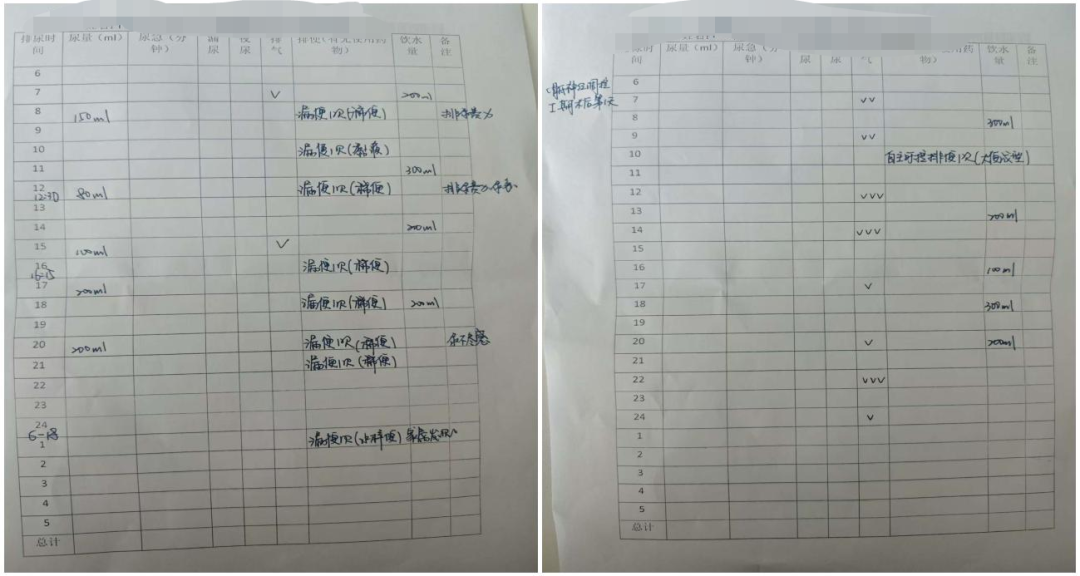 排尿时间 尿量（ml） 尿急（分钟） 漏尿 排气 排便（有无使用药物） 饮水量 备注
6
7 V 200ml
8 150ml 漏便1次(稀便)
9
10 漏便1次
11 300ml
12 12:30 80ml 漏便1次(稀便)
13
14 200ml
15 100ml V
16 漏便1次(稀便)
17 200ml
18 漏便1次(稀便) 200ml
19
20 200ml 漏便1次(稀便)
21 漏便1次(稀便)
22
23
24
1 漏便1次(水样便)
2
3
4
5
总计
时间 尿量（ml） 尿急（分钟） 尿 尿 气 物） 饮水量 备注
6
I期术后第1天
7 VV
8 300ml
9 VV
10 自主可控排便1次(大便成型)
11
12 VVV
13 200ml
14 VVV
15
16 100ml
17 V
18 300ml
19
20 V 200ml
21
22 VVV
23
24 V
1
2
3
4
5
总计